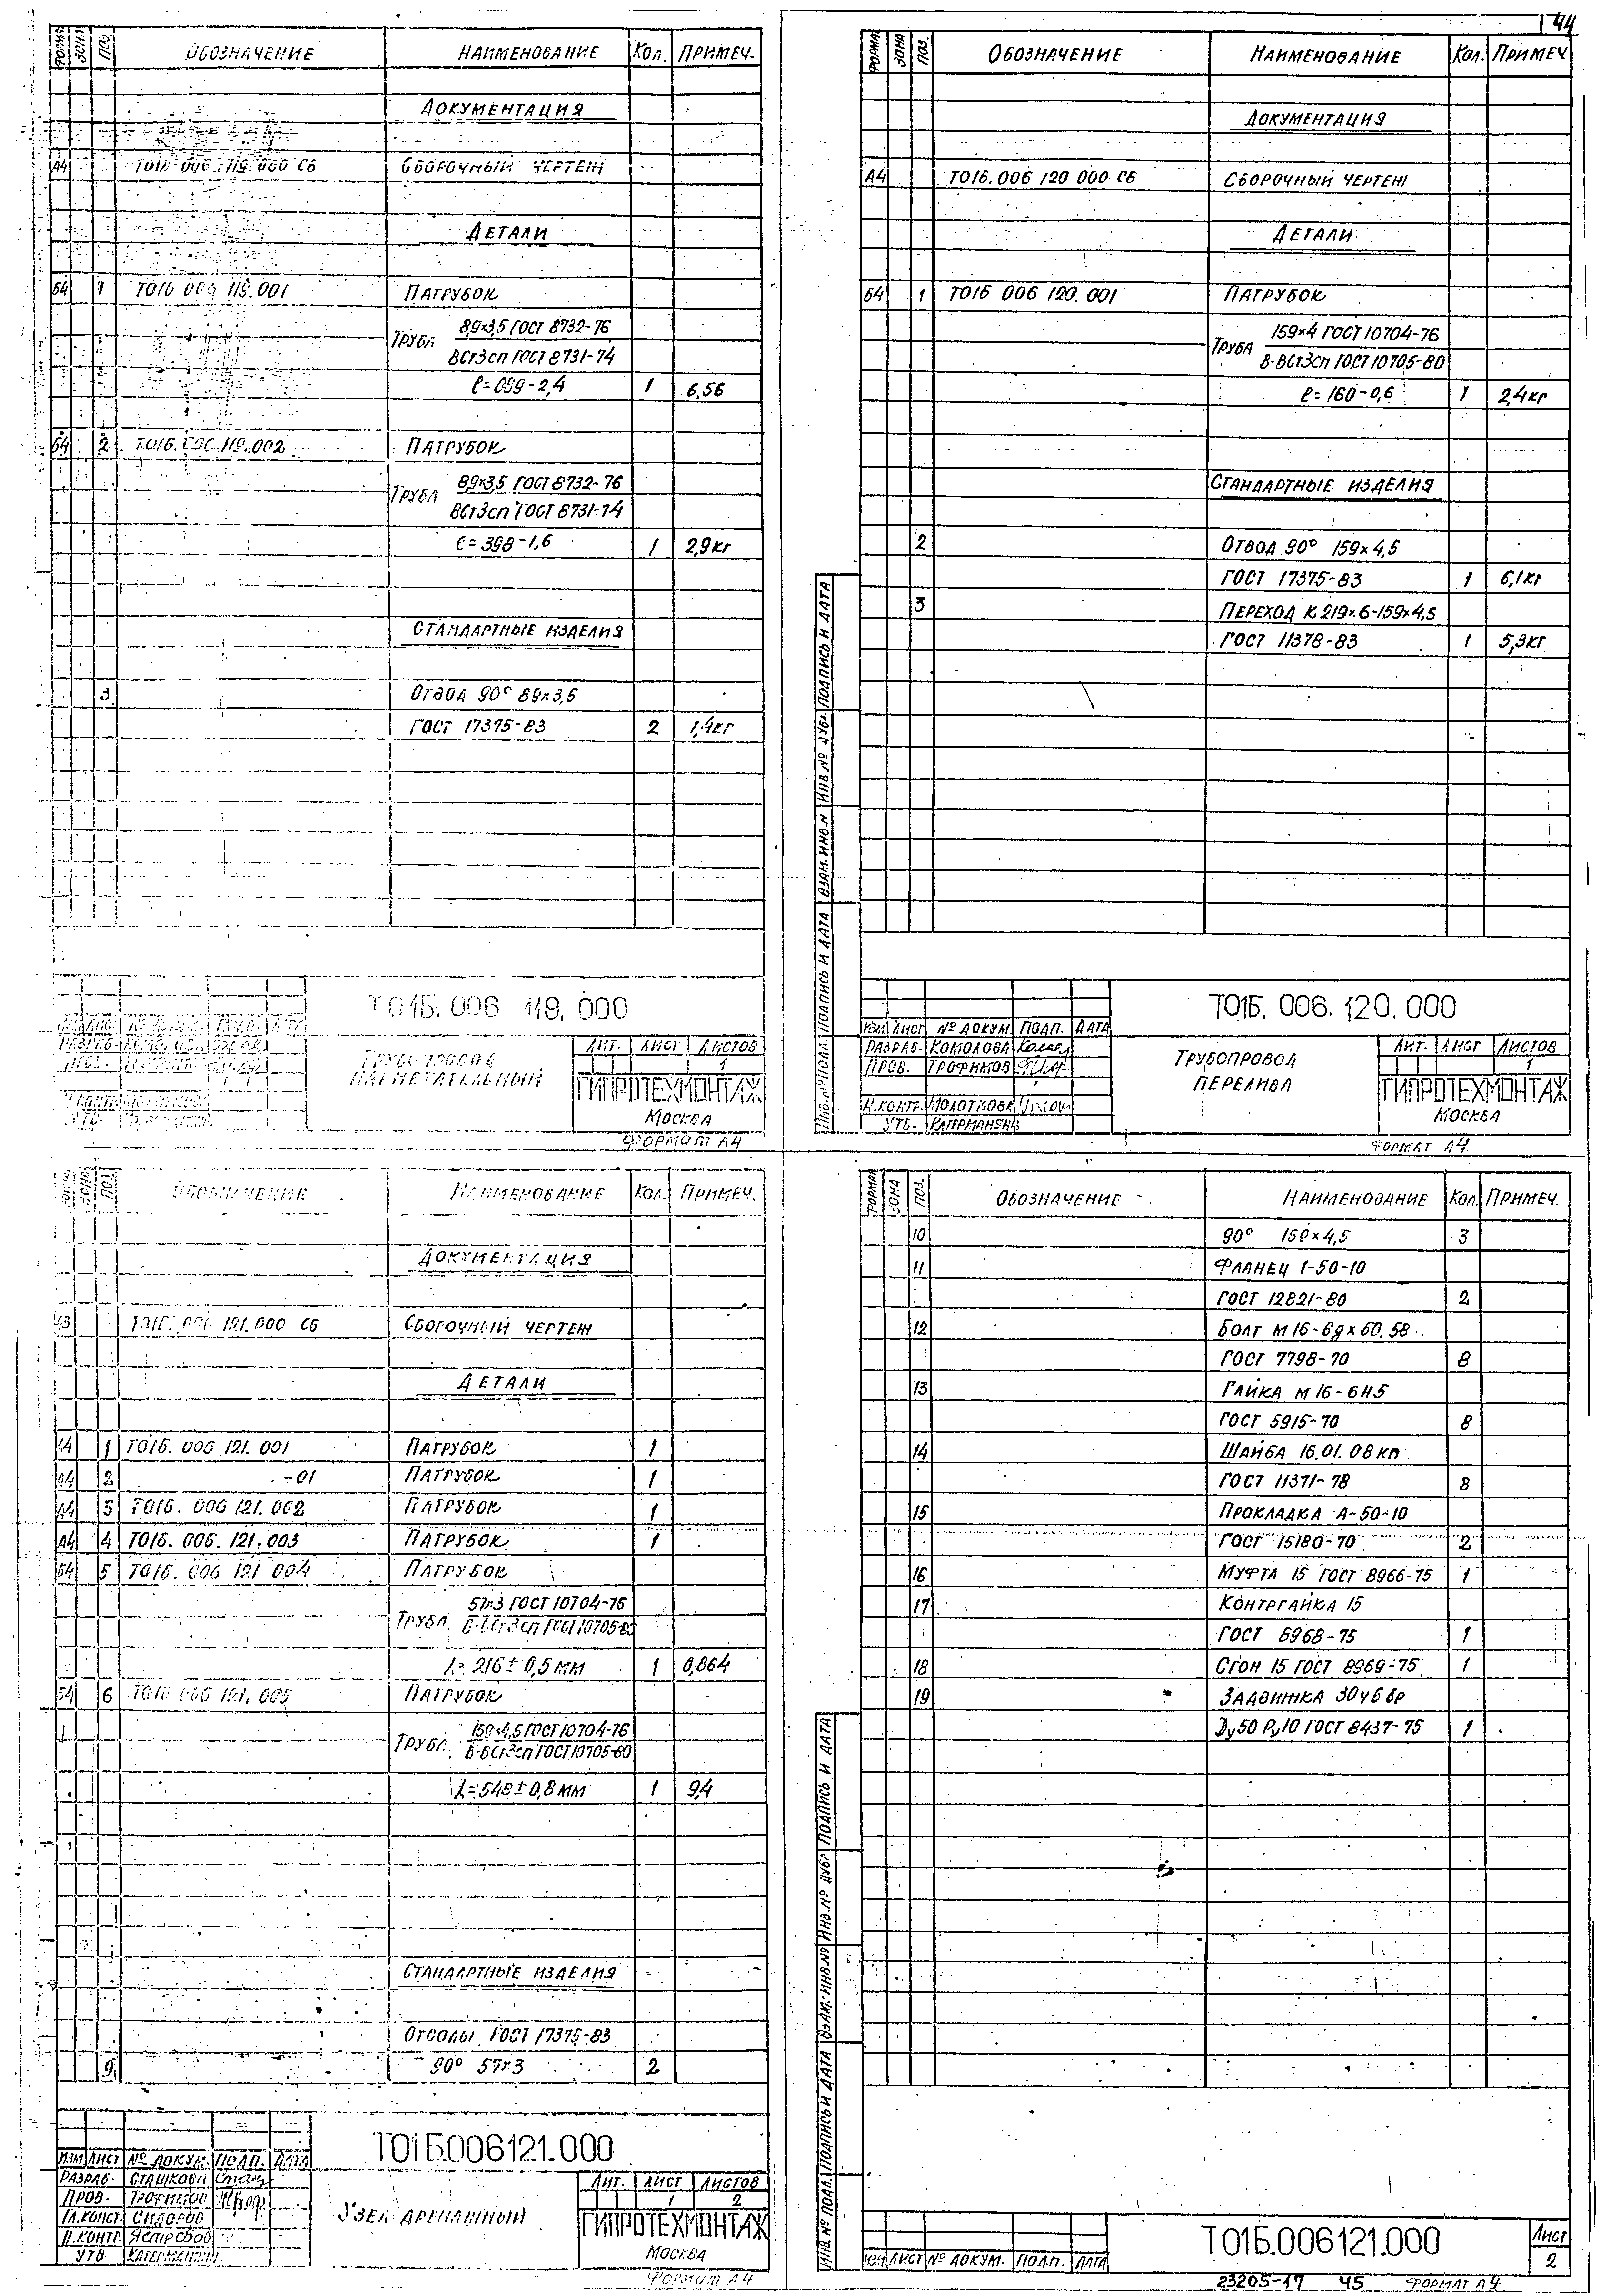 44
ФОРМАТ ЗОНА ПОЗ. ОБОЗНАЧЕНИЕ НАИМЕНОВАНИЕ КОЛ. ПРИМЕЧ.
ДОКУМЕНТАЦИЯ
А4 Т01Б.006.119.000 СБ СБОРОЧНЫЙ ЧЕРТЕЖ
ДЕТАЛИ
Б4 1 Т01Б 006 119.001 ПАТРУБОК
ТРУБА 89×3,5 ГОСТ 8732-76
ВСт3сп ГОСТ 8731-74
1 6,56
Б4 2 Т01Б.006.119.002 ПАТРУБОК
ТРУБА 89×3,5 ГОСТ 8732-76
ВСт3сп ГОСТ 8731-74
ℓ=398-1,6 1 2,9кг
СТАНДАРТНЫЕ ИЗДЕЛИЯ
3 ОТВОД 90° 89×3,5
ГОСТ 17375-83 2 1,4кг
Т01Б.006 119.000
ТРУБОПРОВОД
НАГНЕТАТЕЛЬНЫЙ
ЛИТ. ЛИСТ ЛИСТОВ
1
ГИПРОТЕХМОНТАЖ
МОСКВА
УТВ.
ФОРМАТ А4
ФОРМАТ ЗОНА ПОЗ. ОБОЗНАЧЕНИЕ НАИМЕНОВАНИЕ КОЛ. ПРИМЕЧ
ДОКУМЕНТАЦИЯ
А4 Т01Б.006 120 000 СБ СБОРОЧНЫЙ ЧЕРТЕЖ
ДЕТАЛИ
Б4 1 Т01Б 006 120.001 ПАТРУБОК
ТРУБА 159×4 ГОСТ 10704-76
В-ВСт3сп ГОСТ 10705-80
ℓ=160-0,6 1 2,4кг
СТАНДАРТНЫЕ ИЗДЕЛИЯ
2 ОТВОД 90° 159×4,5
ГОСТ 17375-83 1 6,1кг
3 ПЕРЕХОД К 219×6-159×4,5
ГОСТ 11378-83 1 5,3кг
ИНВ.№ ПОДЛ. ПОДПИСЬ И ДАТА ВЗАМ.ИНВ.№ ИНВ № ДУБЛ. ПОДПИСЬ И ДАТА
Т01Б.006.120.000
ИЗМ. ЛИСТ № ДОКУМ. ПОДП. ДАТА
РАЗРАБ. КОМОЛОВА
ПРОВ. ТРОФИМОВ
Н.КОНТР. МОЛОТКОВА
УТВ. КАТЕРМАНЯН
ТРУБОПРОВОД
ПЕРЕЛИВА
ЛИТ. ЛИСТ ЛИСТОВ
1
ГИПРОТЕХМОНТАЖ
МОСКВА
ФОРМАТ А4
ЗОНА ПОЗ. ОБОЗНАЧЕНИЕ НАИМЕНОВАНИЕ КОЛ. ПРИМЕЧ.
ДОКУМЕНТАЦИЯ
А3 Т01Б.006 121.000 СБ СБОРОЧНЫЙ ЧЕРТЕЖ
ДЕТАЛИ
А4 1 Т01Б.006 121.001 ПАТРУБОК 1
А4 2 -01 ПАТРУБОК 1
А4 3 Т01Б.006 121.002 ПАТРУБОК 1
А4 4 Т01Б.006.121.003 ПАТРУБОК 1
Б4 5 Т01Б.006 121 004 ПАТРУБОК
ТРУБА 57×3 ГОСТ 10704-76
В-ВСт3сп ГОСТ 10705-80
L=216±0,5 мм 1 0,864
Б4 6 Т01Б 006 121.005 ПАТРУБОК
ТРУБА 159×4,5 ГОСТ 10704-76
В-ВСт3сп ГОСТ 10705-80
L=548±0,8 мм 1 9,4
СТАНДАРТНЫЕ ИЗДЕЛИЯ
ОТВОДЫ ГОСТ 17375-83
9 90° 57×3 2
Т01Б.006121.000
ИЗМ ЛИСТ № ДОКУМ. ПОДП. ДАТА
РАЗРАБ. СТАШКОВА
ПРОВ. ТРОФИМОВ
ГЛ.КОНСТ. СИДОРОВ
Н.КОНТР. ЯСТРЕБОВ
УТВ КАТЕРМАНЯН
УЗЕЛ ДРЕНАЖНЫЙ
ЛИТ. ЛИСТ ЛИСТОВ
1 2
ГИПРОТЕХМОНТАЖ
МОСКВА
ФОРМАТ А4
ФОРМАТ ЗОНА ПОЗ. ОБОЗНАЧЕНИЕ НАИМЕНОВАНИЕ КОЛ. ПРИМЕЧ.
10 90° 159×4,5 3
11 ФЛАНЕЦ 1-50-10
ГОСТ 12821-80 2
12 БОЛТ М16-6g×60.58
ГОСТ 7798-70 8
13 ГАЙКА М16-6Н5
ГОСТ 5915-70 8
14 ШАЙБА 16.01.08кп
ГОСТ 11371-78 8
15 ПРОКЛАДКА А-50-10
ГОСТ 15180-70 2
16 МУФТА 15 ГОСТ 8966-75 1
17 КОНТРГАЙКА 15
ГОСТ 8968-75 1
18 СГОН 15 ГОСТ 8969-75 1
19 ЗАДВИЖКА 30ч6бр
Ду50 Ру10 ГОСТ 8437-75 1
ИНВ.№ ПОДЛ. ПОДПИСЬ И ДАТА ВЗАМ.ИНВ.№ ИНВ.№ ДУБЛ ПОДПИСЬ И ДАТА
ИЗМ ЛИСТ № ДОКУМ. ПОДП. ДАТА
Т01Б.006121.000
ЛИСТ
2
23205-17 45 ФОРМАТ А4